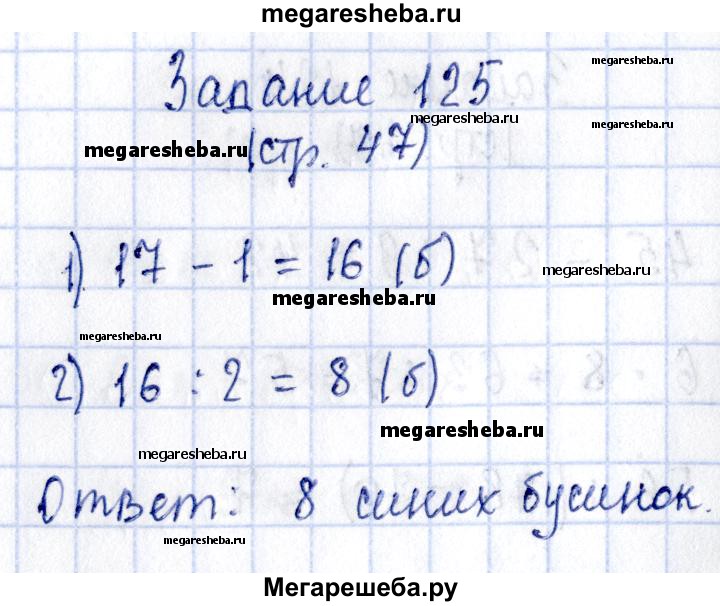 megaresheba.ru
megaresheba.ru
Задание 125
megaresheba.ru
megaresheba.ru
megaresheba.ru (стр. 47)
1) 17 - 1 = 16 (б)
megaresheba.ru
megaresheba.ru
megaresheba.ru
megaresheba.ru
2) 16 : 2 = 8 (б)
megaresheba.ru
megaresheba.ru
Ответ: 8 синих бусинок.
megaresheba.ru
megaresheba.ru
Мегарешеба.ру